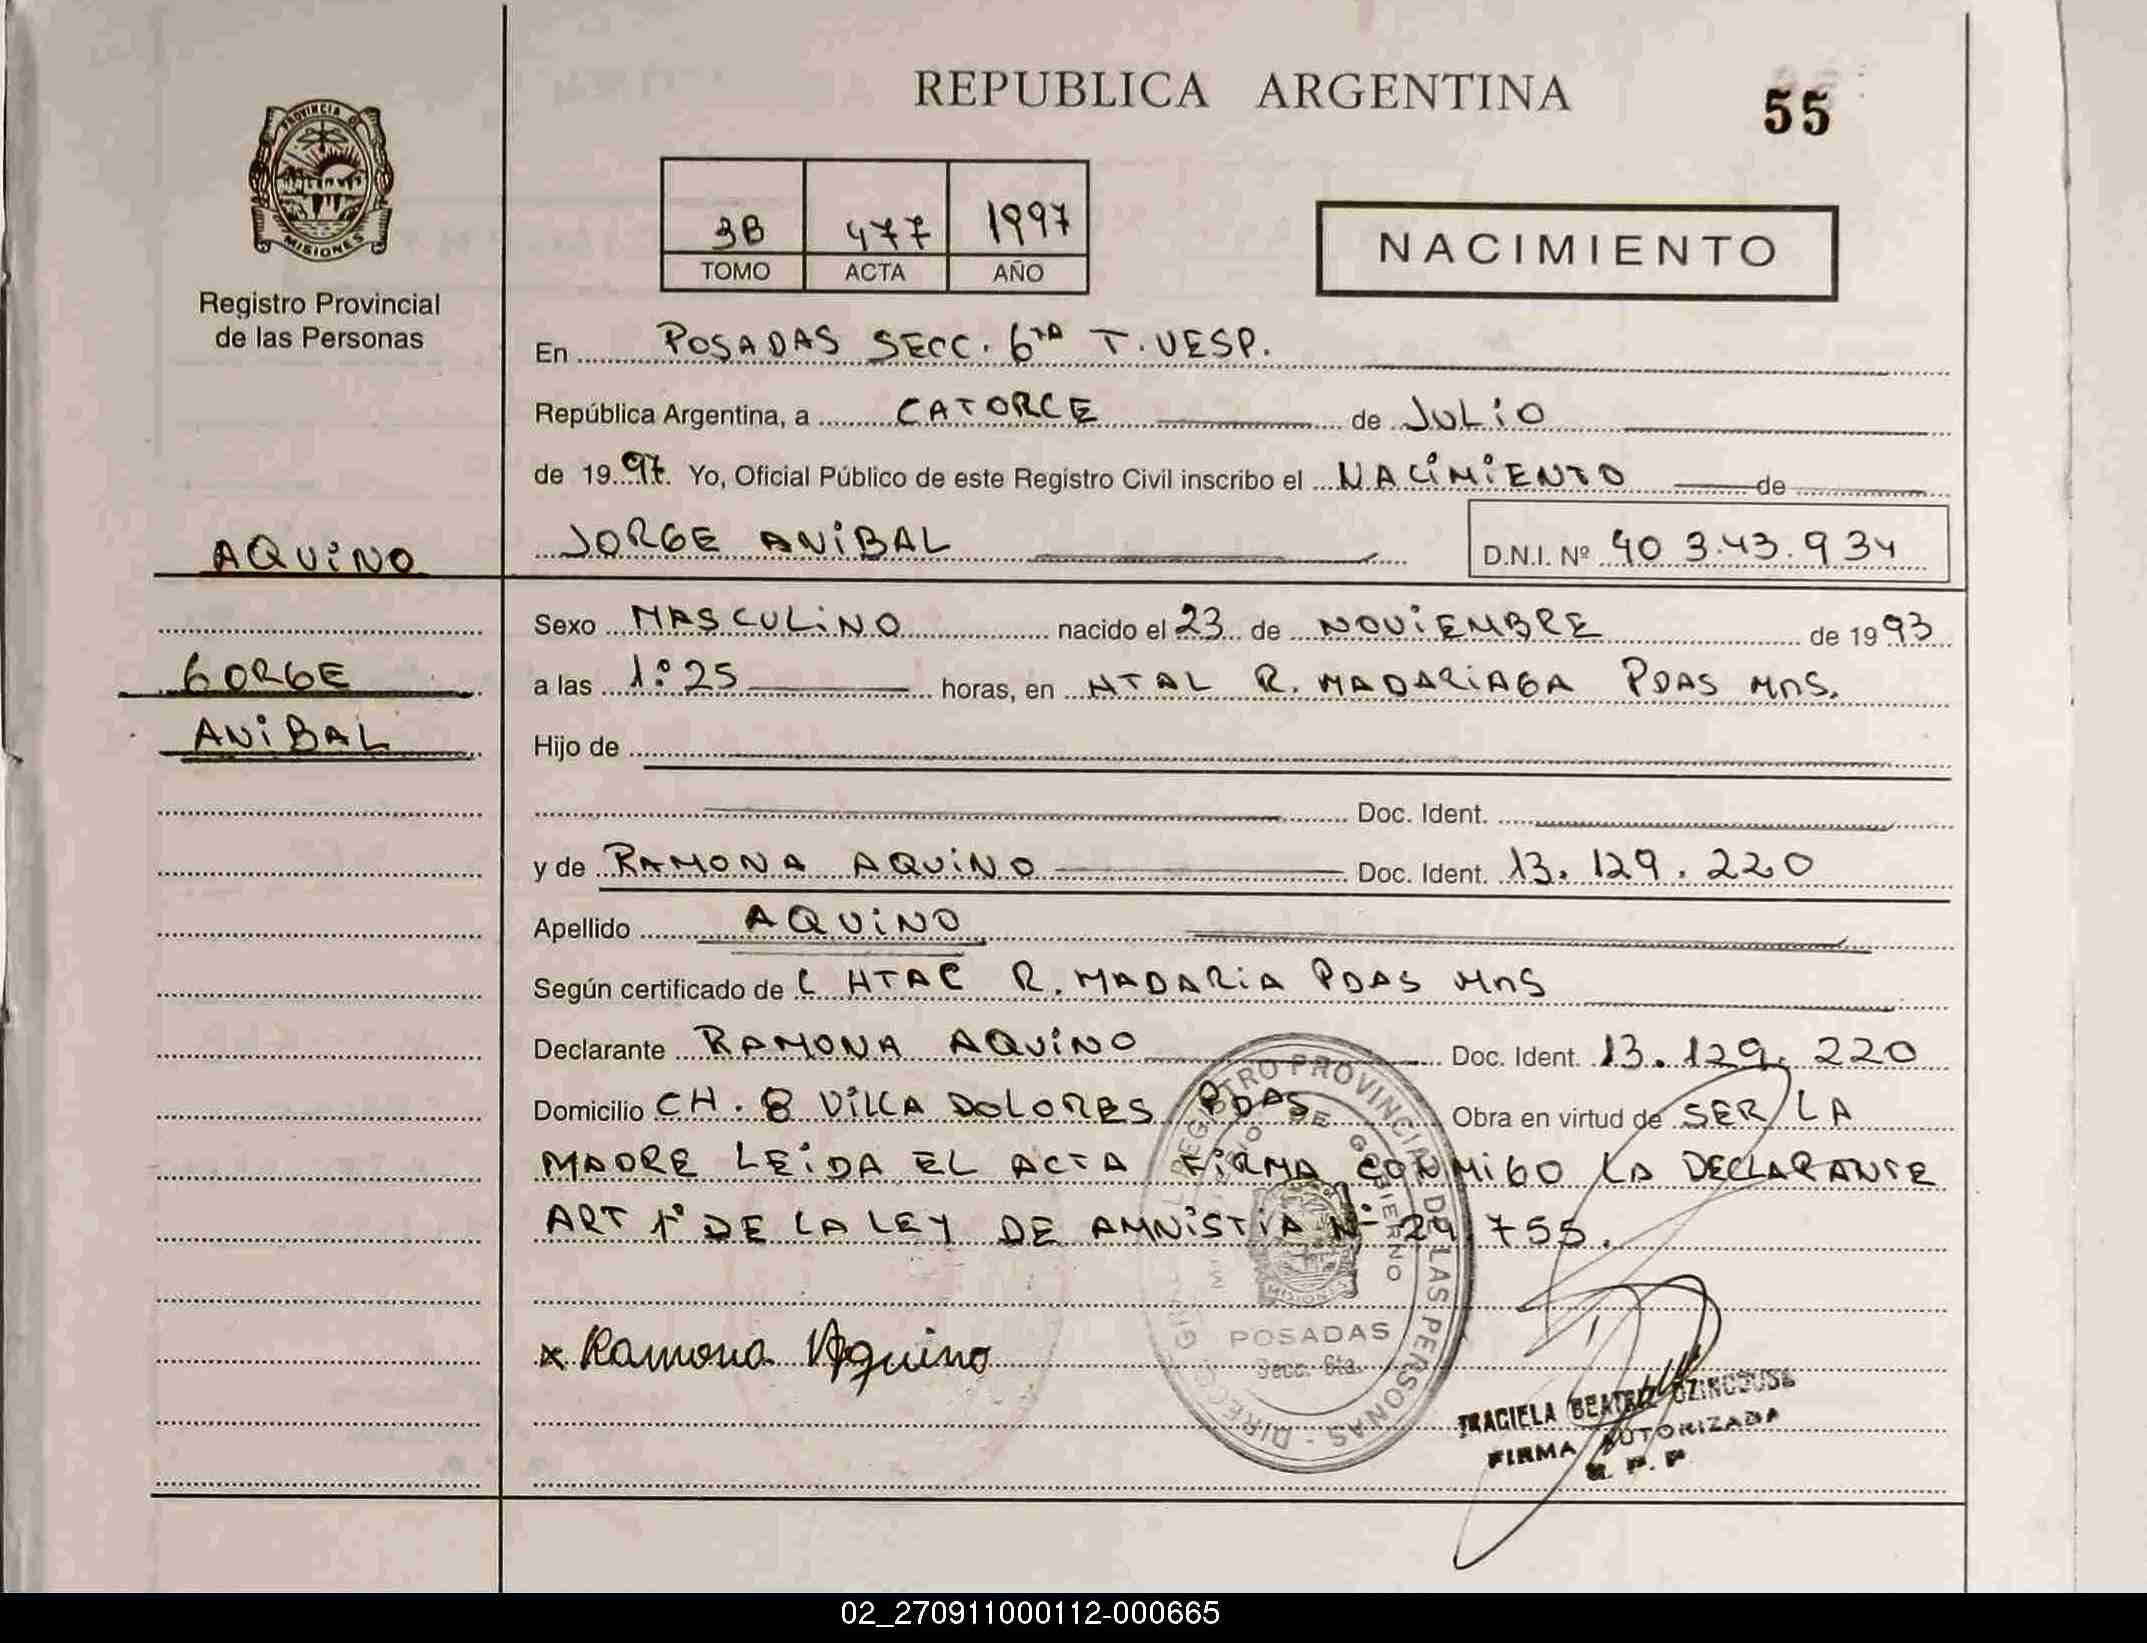 REPUBLICA ARGENTINA
55
PROVINCIA DE
MISIONES
Registro Provincial
de las Personas
3B 477 1997
TOMO ACTA AÑO
NACIMIENTO
En POSADAS SECC. 6ta T. VESP.
República Argentina, a CATORCE de JULIO
de 1997. Yo, Oficial Público de este Registro Civil inscribo el NACIMIENTO de
AQUINO
JORGE ANIBAL D.N.I. Nº 40 343.934
Sexo MASCULINO nacido el 23 de NOVIEMBRE de 1993
GORGE
a las 1:25 horas, en HTAL R. MADARIAGA PDAS MNS.
ANIBAL
Hijo de
Doc. Ident.
y de RAMONA AQUINO Doc. Ident. 13.129.220
Apellido AQUINO
Según certificado de L HTAL R. MADARIA PDAS MNS
Declarante RAMONA AQUINO Doc. Ident. 13.129.220
Domicilio CH. 8 VILLA DOLORES PDAS Obra en virtud de SER LA
MADRE LEIDA EL ACTA FIRMA CONMIGO LA DECLARANTE
ART 1º DE LA LEY DE AMNISTIA Nº 24.755.
x Ramona Aquino
REGISTRO PROVINCIAL DE LAS PERSONAS - DIRECC
DE GOBIERNO
MISIONES
POSADAS
Secc. 6ta.
BEATRIZ
FIRMA AUTORIZADA
R. P. P
02_270911000112-000665